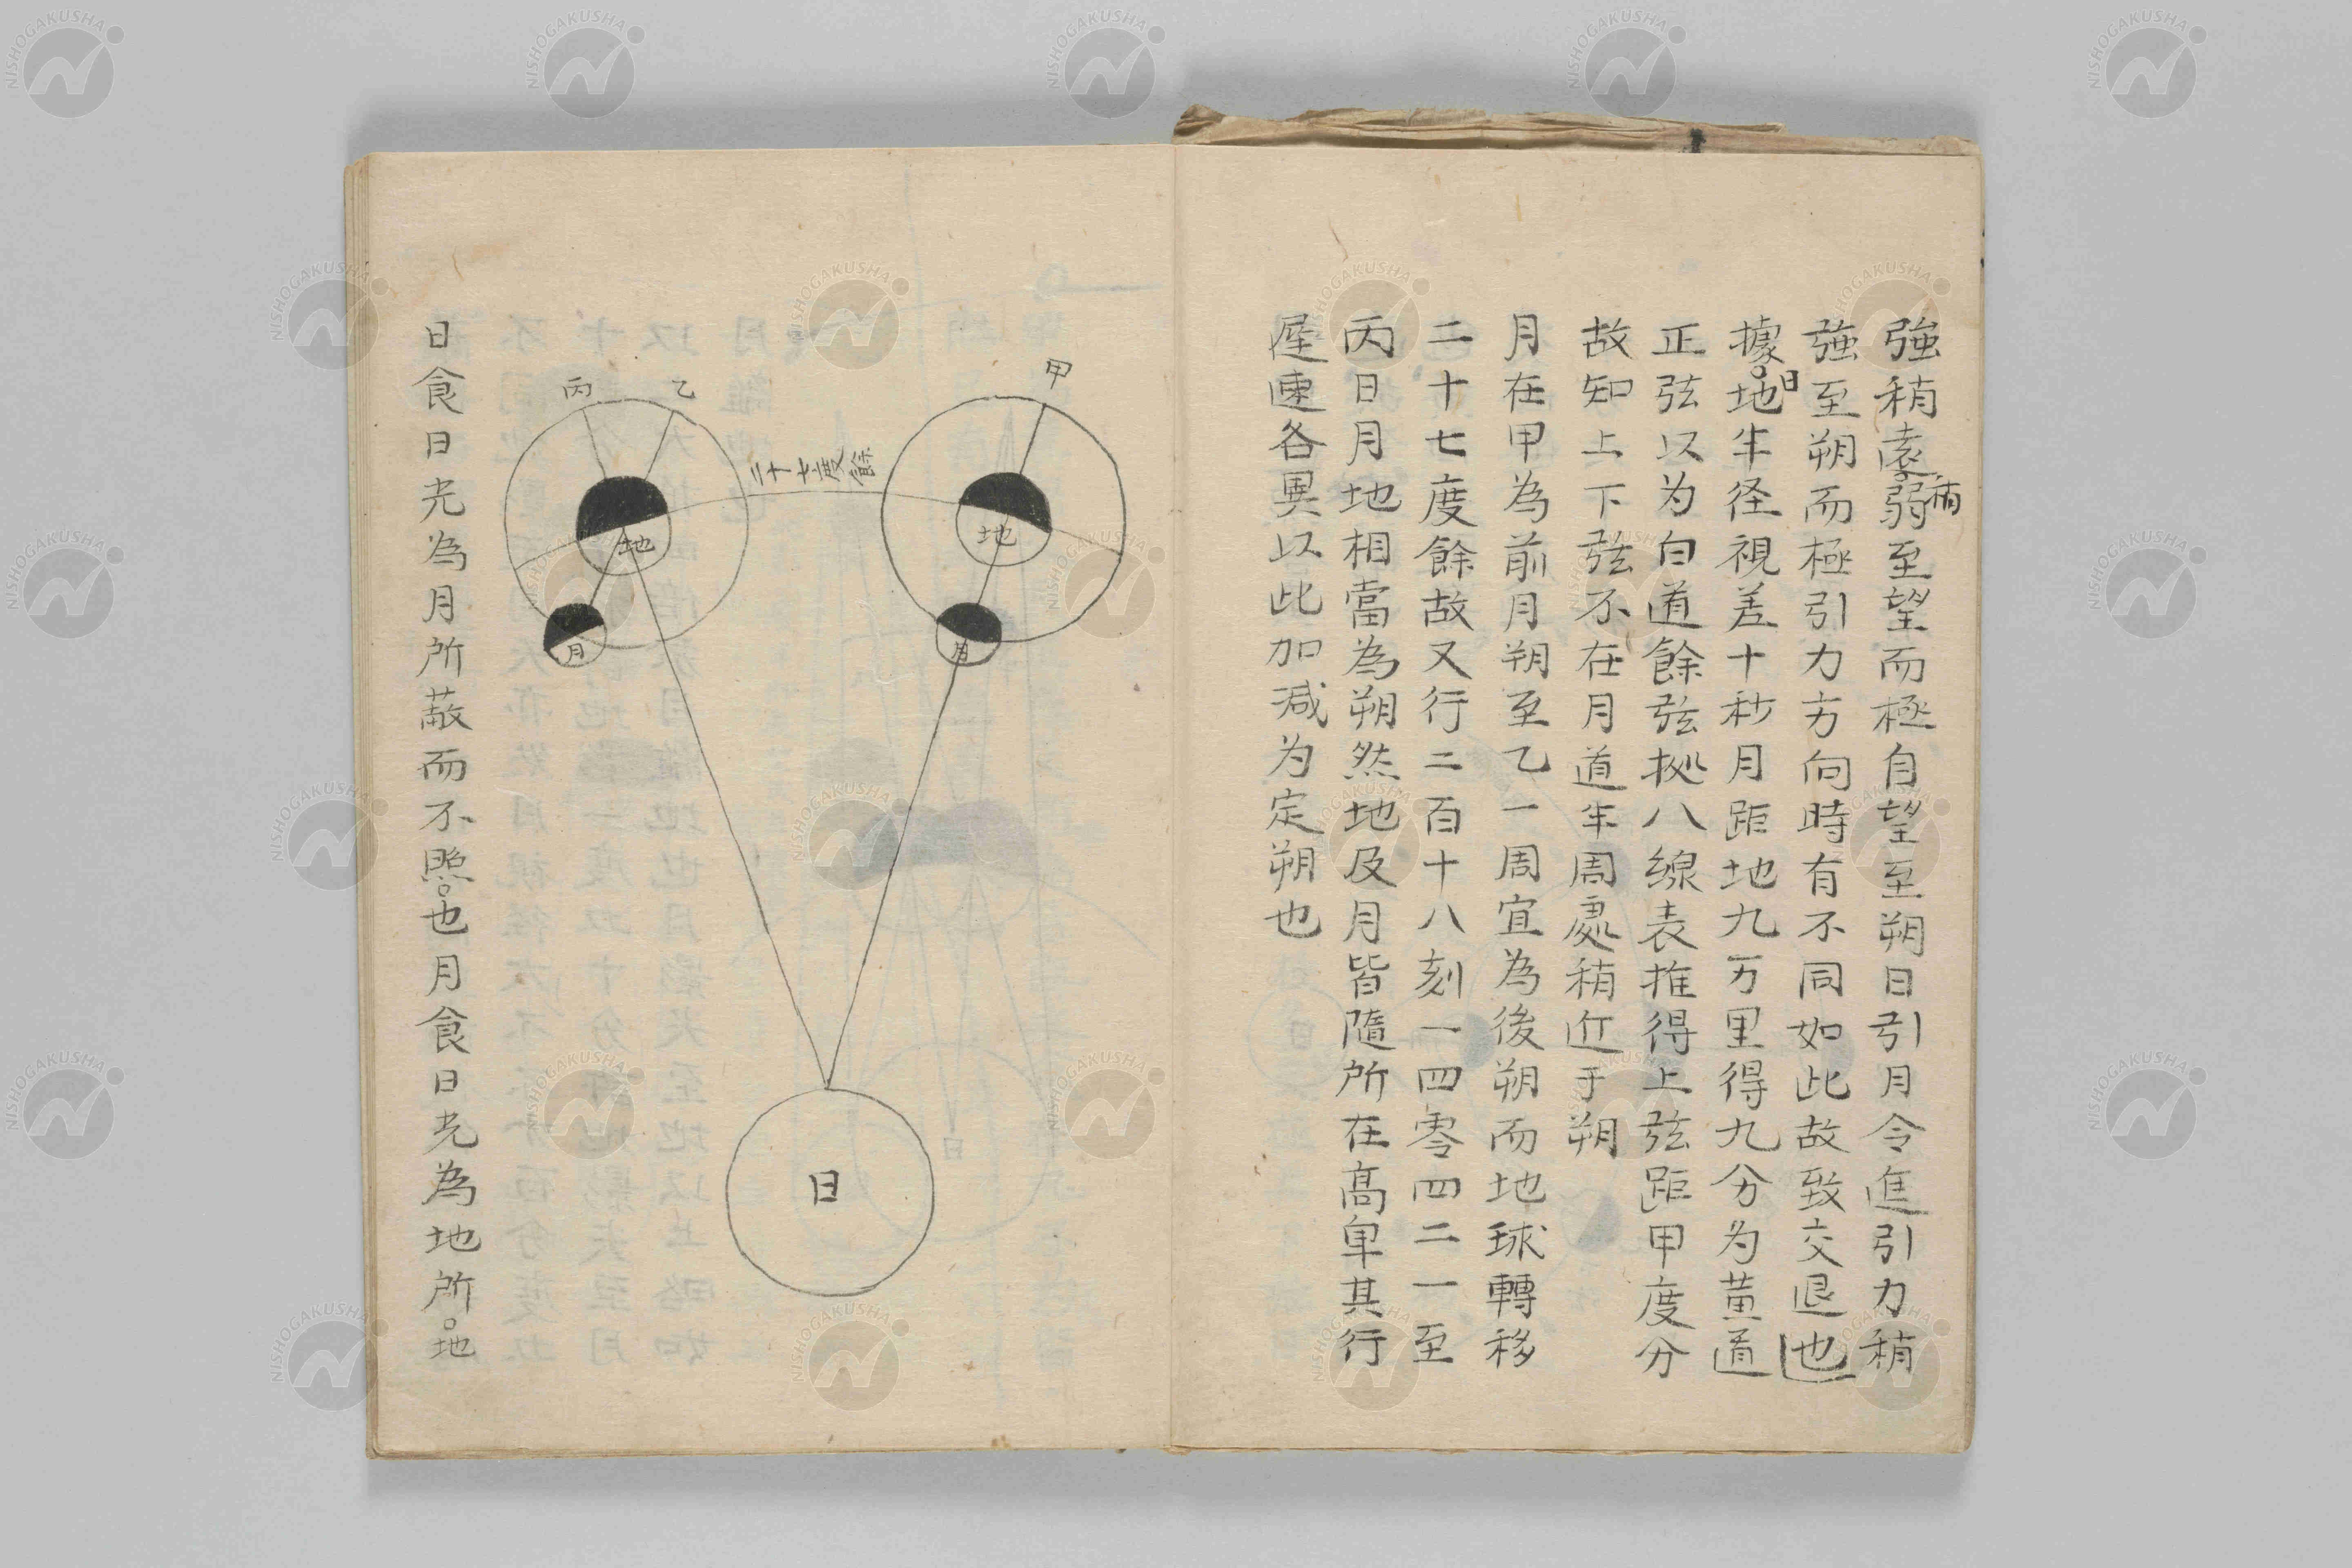 強稍遠稍弱至望而極自望至朔日引月令進引力稍
強至朔而極引力方向時有不同如此故致交退也
據日地半径視差十秒月距地九万里得九分为黄道
正弦以为白道餘弦拠八線表推得上弦距甲度分
故知上下弦不在月道半周處稍近于朔
月在甲為前月朔至乙一周宜為後朔而地球轉移
二十七度餘故又行二百十八刻一四零四二一至
丙日月地相當為朔然地及月皆隨所在髙卑其行
遲速各異以此加减为定朔也
甲
二十七度餘
乙
丙
地
月
地
月
日
日食日光為月所蔽而不照也月食日光為地所
地
NISHOGAKUSHA